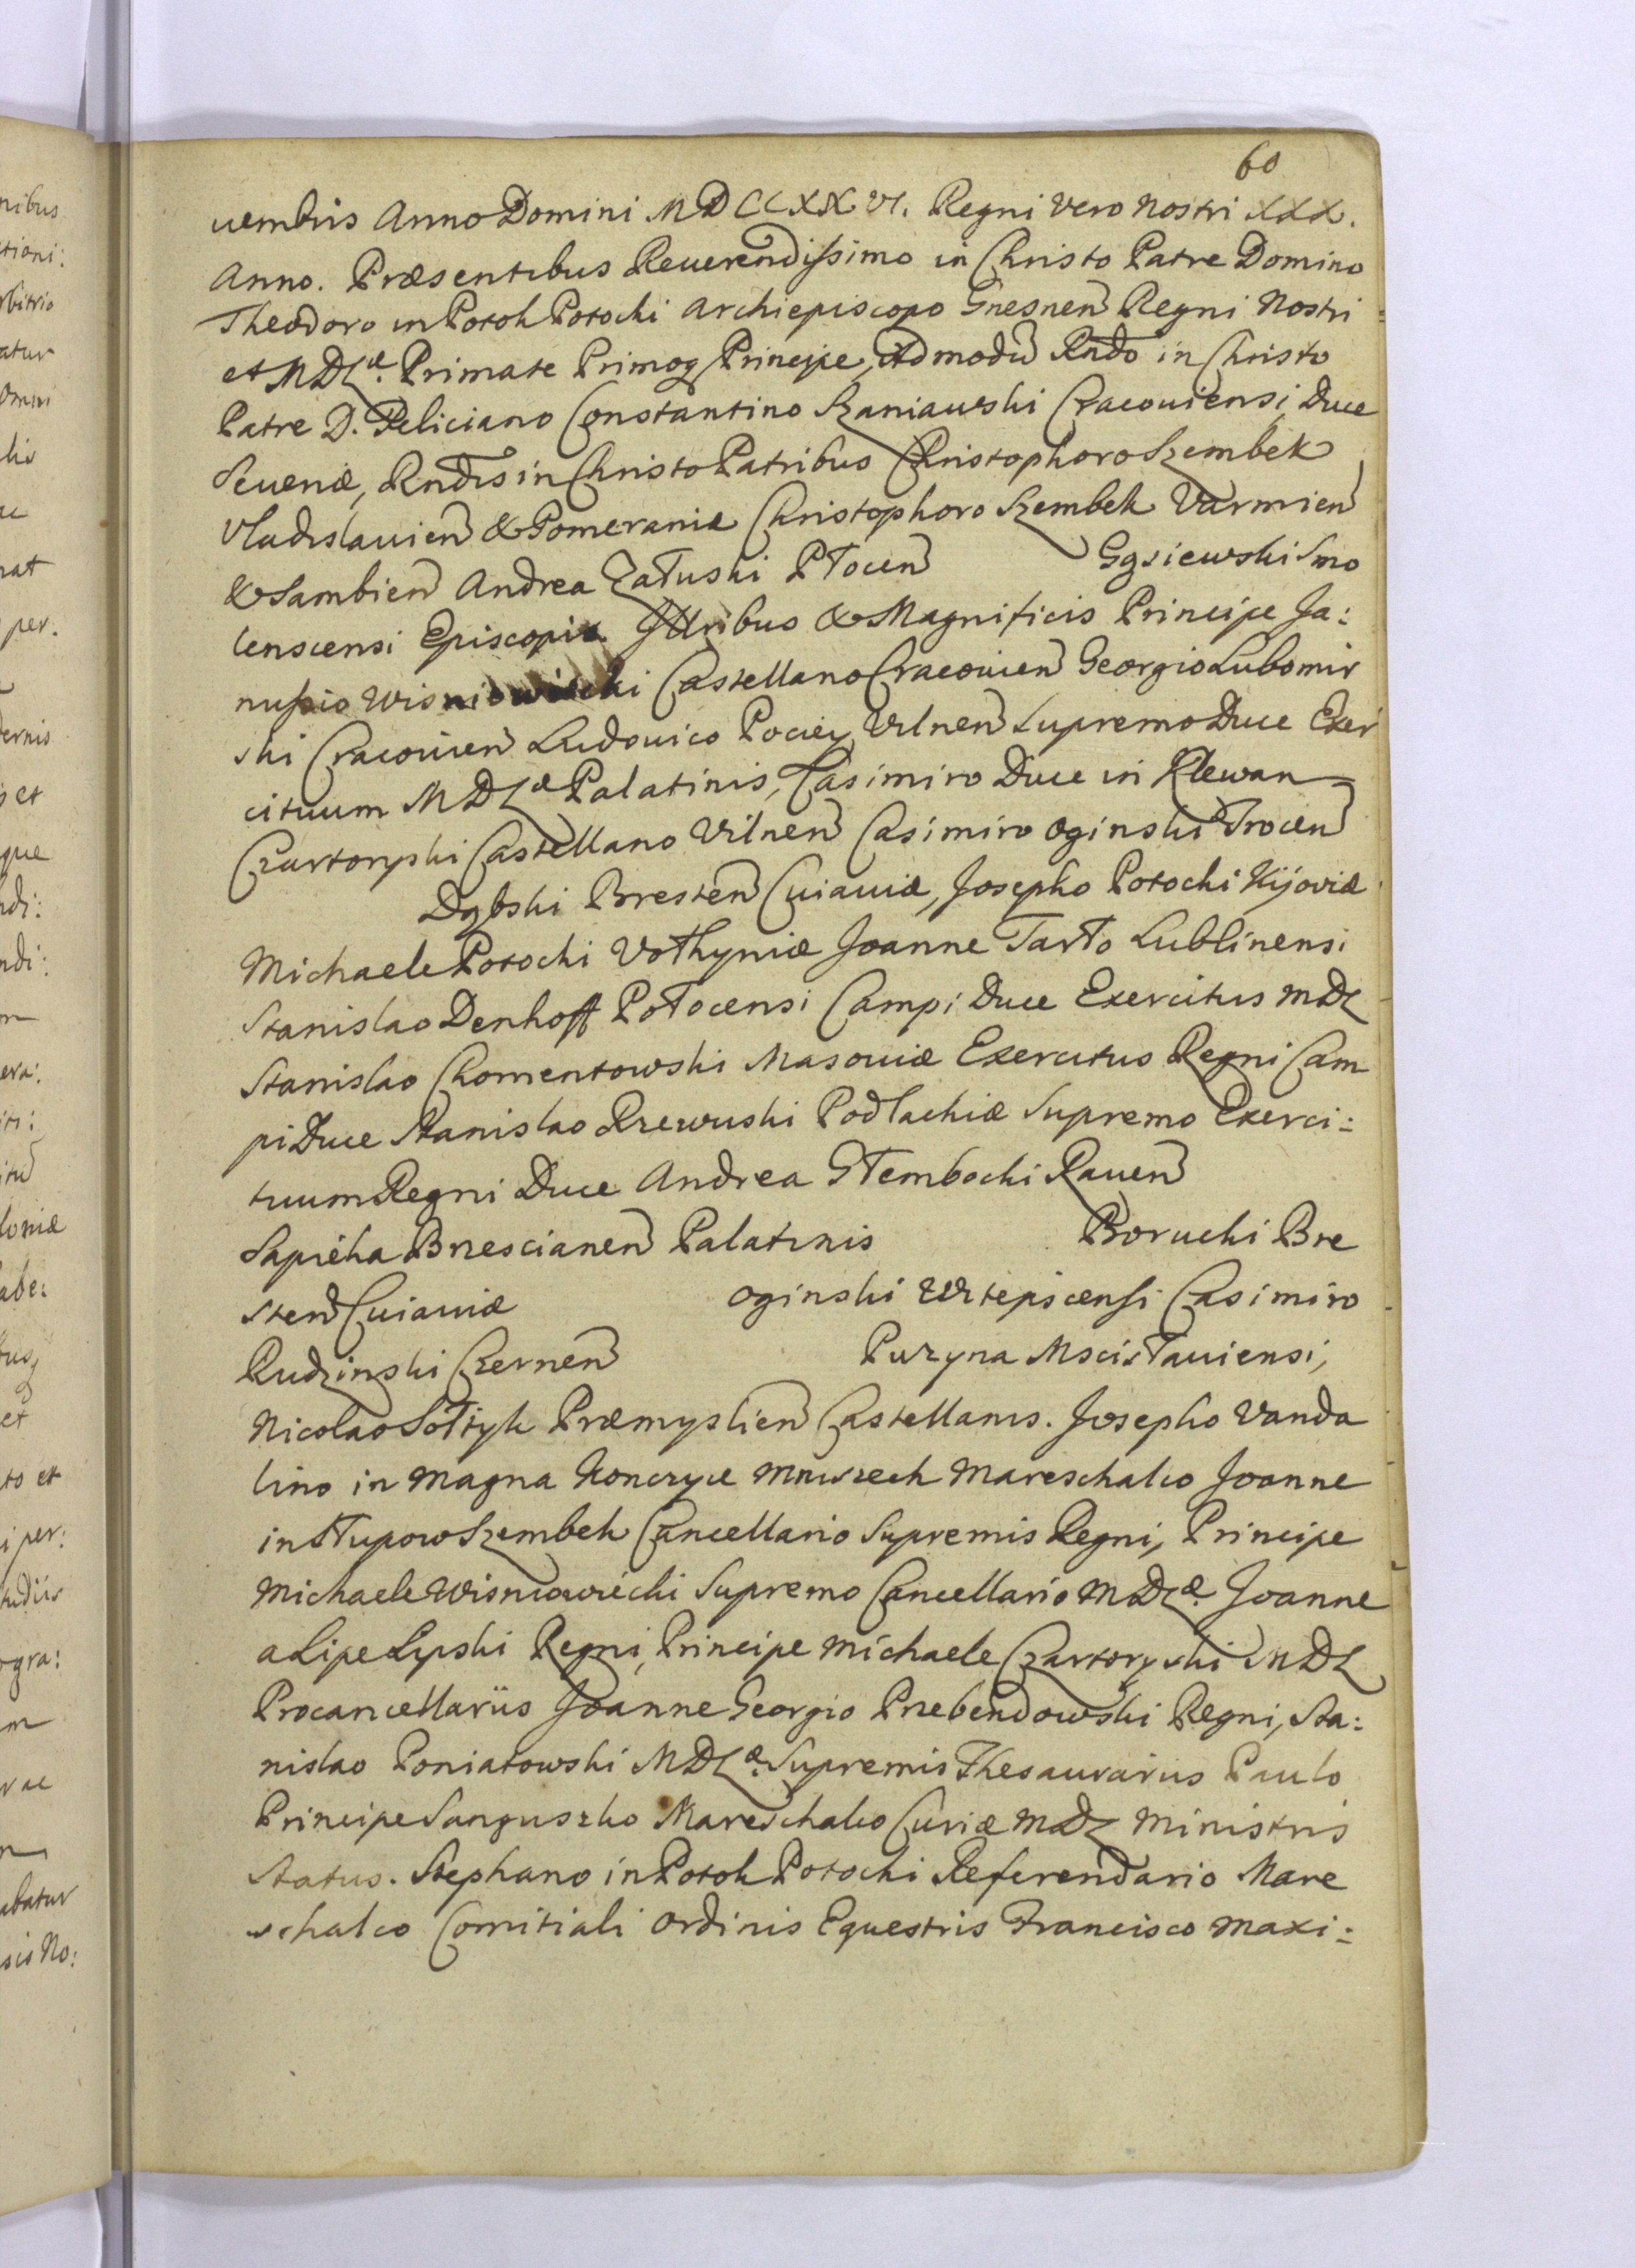 60
uembris Anno Domini MDCCXXVI. Regni Vero Nostri XXX.
Anno. Præsentibus Reuerendissimo in Christo Patre Domino
Theodoro in Potok Potocki Archiepiscopo Gnesnen Regni Nostri
et MDLæ. Primate Primoq Principe, Admodũ Rndo in Christo
Patre D. Feliciano Constantino Szaniawski Cracouiensi, Duce
Seueriæ, Rndis in Christo Patribus Christophoro Szembek
Vladislauien & Pomeraniæ Christophoro Szembek Varmien
& Sambien Andrea Załuski Płocen Gąsiewski Smo
lenscensi Episcopis. Illribus & Magnificis Principe Ja:
nussio Wisniowiecki Castellano Cracouien Georgio Lubomir
ski Cracouien Ludouico Pociey Vilnen Supremo Duce Exer
cituum MDLæ Palatinis, Casimiro Duce in Klewan
Czartoryski Castellano Vilnen Casimiro Oginski Trocen
Dąbski Bresten Cuiauiæ, Josepho Potocki Kijoviæ
Michaele Potocki Vołhyniæ Joanne Tarło Lublinensi
Stanislao Denhoff Połocensi Campi Duce Exercitus MDL
Stanislao Chomentowski Masouiæ Exercitus Regni Cam
pi Duce Stanislao Rzewuski Podlachiæ Supremo Exerci:
tuum Regni Duce Andrea Głembocki Rauen
Sapieha Brzescianen Palatinis Borucki Bre
sten Cuiauiæ Oginski Witepscensi Casimiro
Rudzinski Czernen Puzyna Mscisłauiensi,
Nicolao Sołtyk Præmyslien Castellanis. Josepho Vanda
lino in Magna Konczyce Mniszech Mareschalco Joanne
in Słupow Szembek Cancellario Supremis Regni, Principe
Michaele Wisniowiecki Supremo Cancellario MDLæ. Joanne
a Lipe Lypski Regni, Principe Michaele Czartoryski MDL
Procancellariis Joanne Georgio Przebendowski Regni, Sta:
nislao Poniatowski MDLæ. Supremis Thesaurariis Paulo
Principe Sanguszko Mareschalco Curiæ MDL Ministris
Status. Stephano in Potok Potocki Referendario Mare
schalco Comitiali Ordinis Equestris Francisco Maxi: